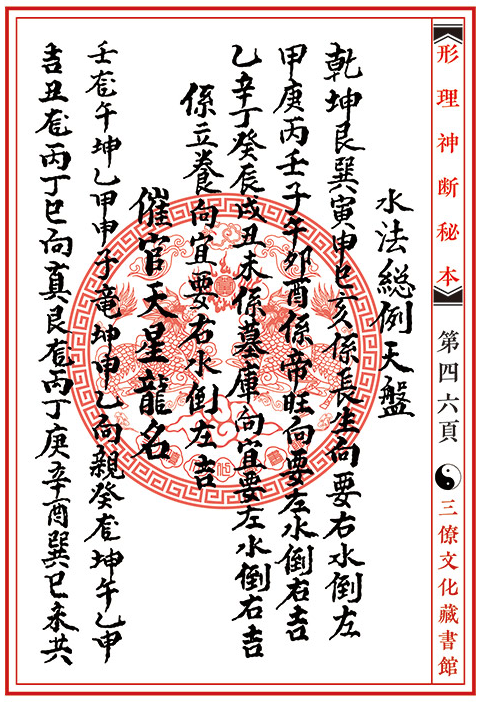 形理神断秘本
第四六頁
三僚文化藏書館
水法総例天盤
乾坤艮巽寅申巳亥係長生向要右水倒左
甲庚丙壬子午卯酉係帝旺向要左水倒右吉
乙辛丁癸辰戌丑未係墓庫向宜要左水倒右吉
係立養向宜要右水倒左吉
催官天星龍名
壬龙午坤乙甲申子竜坤申乙向親癸龙坤午乙申
吉丑龙丙丁巳向真艮龙丙丁庚辛酉巽巳来共